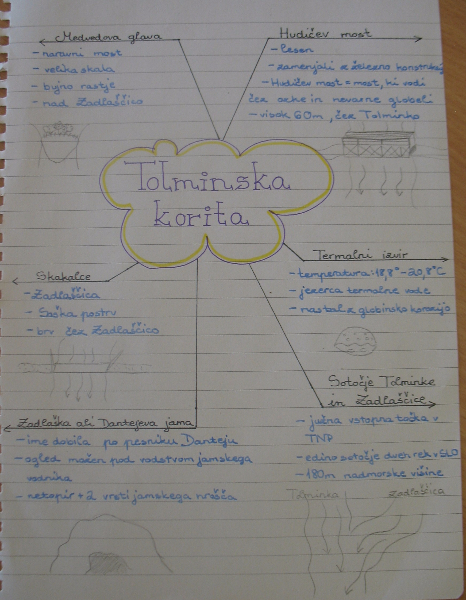 Medvedova glava
- naravni most
- velika skala
- bujno rastje
- nad Zadlaščico
Hudičev most
- lesen
- zamenjali z železno konstrukcijo
- Hudičev most = most, ki vodi
čez ozke in nevarne globeli
- visok 60m, čez Tolminko
Tolminska
korita
Termalni izvir
- temperatura: 18,8° - 20,8°C
- jezerca termalne vode
- nastal z globinsko korozijo
Skakalce
- Zadlaščica
- Soška postrv
- brv čez Zadlaščico
Sotočje Tolminke
in Zadlaščice
- južna vstopna točka v
TNP
- edino sotočje dveh rek v SLO
- 180m nadmorske višine
Tolminka
Zadlaščica
Zadlaška ali Dantejeva jama
- ime dobila po pesniku Danteju
- ogled možen pod vodstvom jamskega
vodnika
- netopir + 2 vrsti jamskega hrošča